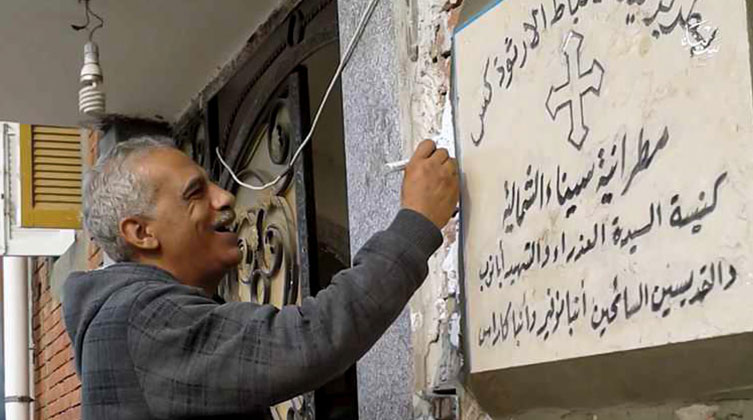 الاقباط الارثوذكس
مطرانية سيناء الشمالية
كنيسة السيدة العذراء والشهيد أبانوب
والقديسين السائحين أنبا نوفير وأنبا كاراس